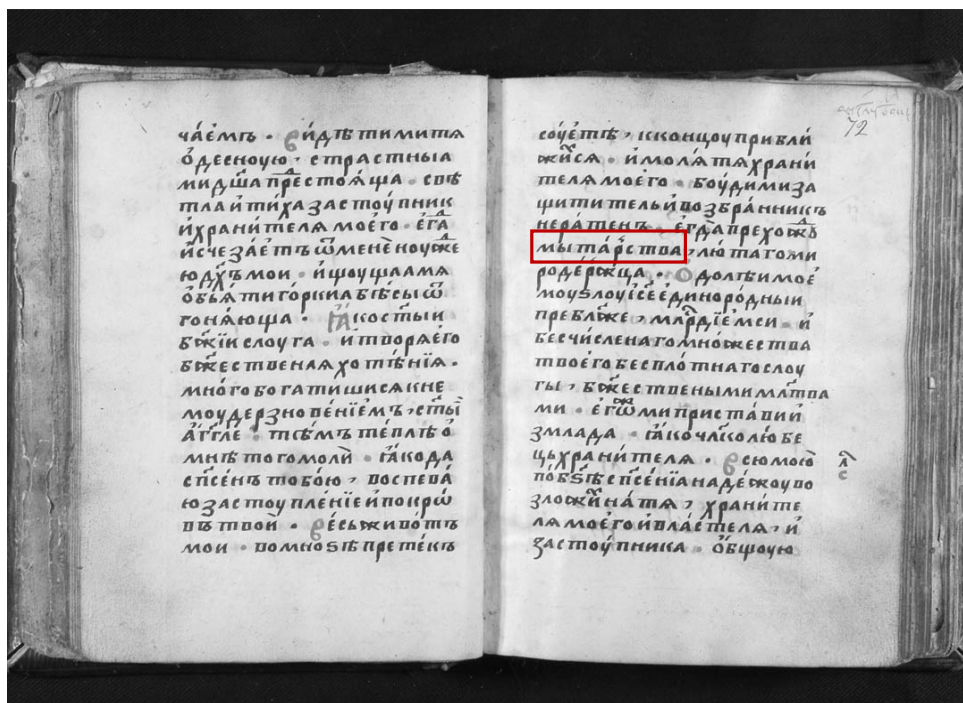 ча́емъ · ви́дѣти ми тѧ
ѻ҆десноую , страстныѧ
ми дш҃а пре́стоѧ́ща · свѣ
тла и҆ ти́ха застоу́пник
и҆ храни́телѧ моего̀ · є҆гда
и҆счеза́етъ ѿ менѐ ноу́же
ю дх҃ъ мои · и҆ шоуѫѧ мѧ
ѡ҆б̾ѧ́ти го́ркиѧ бѣсы ѿ
гонѧ́юща · Ꙗ҆ко ст҃ыи
бж҃їи слоуга · и҆ творѧ є҆го
бжественаѧ хотѣ́нїѧ ·
мно́го богати́ши сѧ к не
моу дерзнове́нїемъ , ст҃ы́и
а҆́гг҃ле · тѣ́мъ те́плѣ ѻ҆
мнѣ̀ того̀ моли̇̀ · ꙗ҆ко да
сп҃се́нъ тобо́ю , воспева́
ю застоупле́нїе и҆ покро́
въ твои · ве́сь живо́тъ
мои · во мно́ѕѣ прете́къ
соу́етѣ , к концоу прибли́
жи́хсѧ · и҆ молѧ́ тѧ храни́
телѧ моего · боу́ди ми за
щи́титель и҆ возбра́нникъ
нера́тенъ · є҆гда̀ прехожоу̀
мыта́рьства , лю́таго ми
роде́ржца · ѻ҆долѣ́ мое́
моу ѕлоу і҆се є҆диноро́дныи
пребл҃же , млⷭ҇рдїемъ си · и҆
бесчи́слена го мно́жества
твоего̀ беспло́тнаго слоу
гы , бо́жествеными мл҃тва
ми · є҆го́же ми приста́ви и҆
змлада · ꙗ҆ко чл҃колю́бе
цъ храни́телѧ · всю мою̀
по бз҃ѣ сп҃се́нїѧ наде́жоу во
зложи́хъ на́ тѧ , храни́те
лѧ моего̀ и҆ вла́стелѧ , и҆
застоу́пника · ѻ҆́бщоую
72